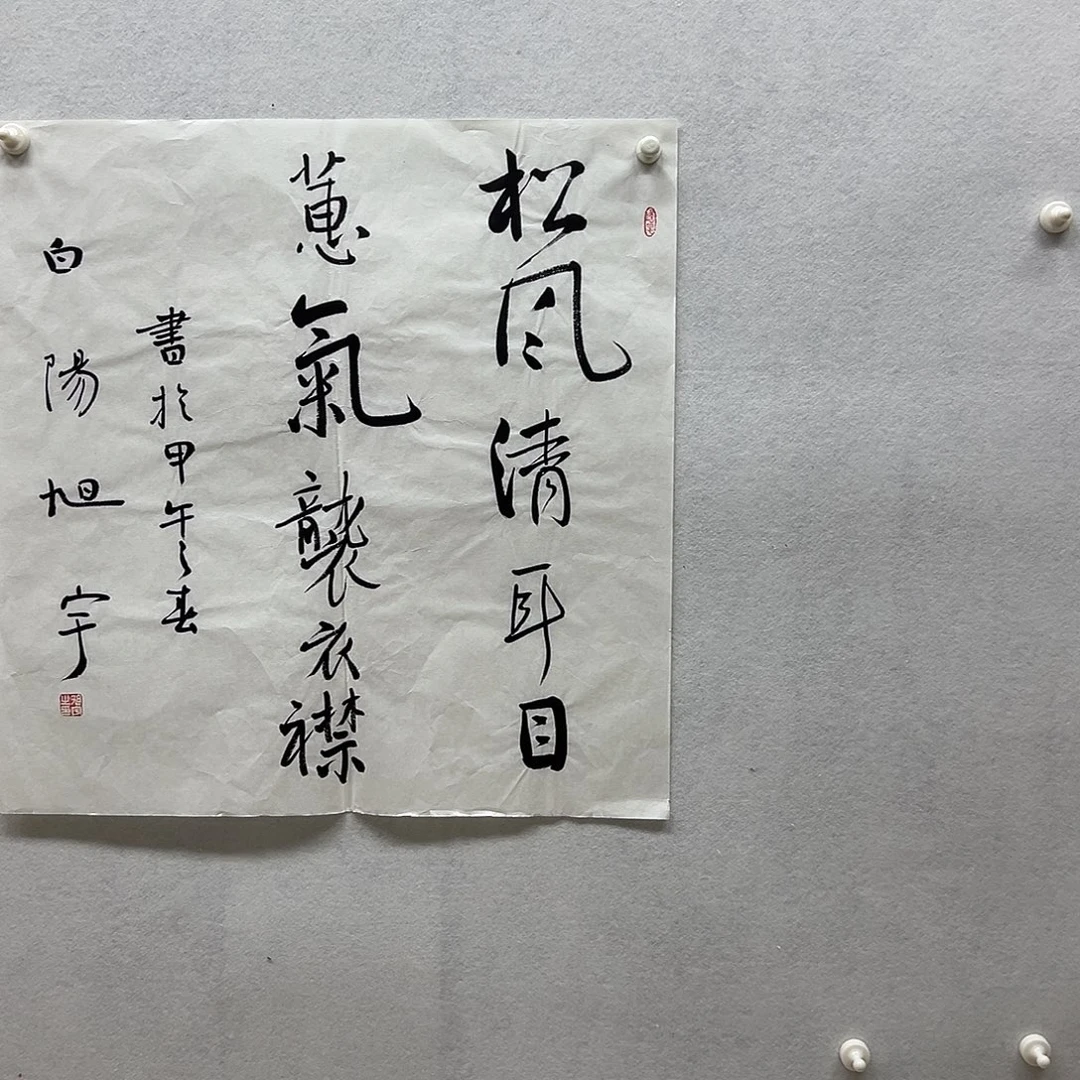 松风清耳目
蕙氣襲衣襟
書於甲午年春
白陽旭宇